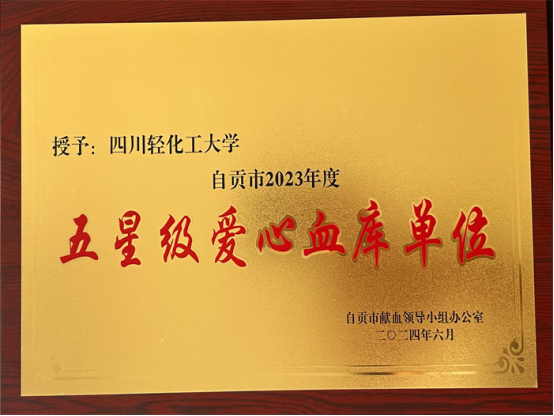 授予：四川轻化工大学
自贡市2023年度
五星级爱心血库单位
自贡市献血领导小组办公室
二〇二四年六月